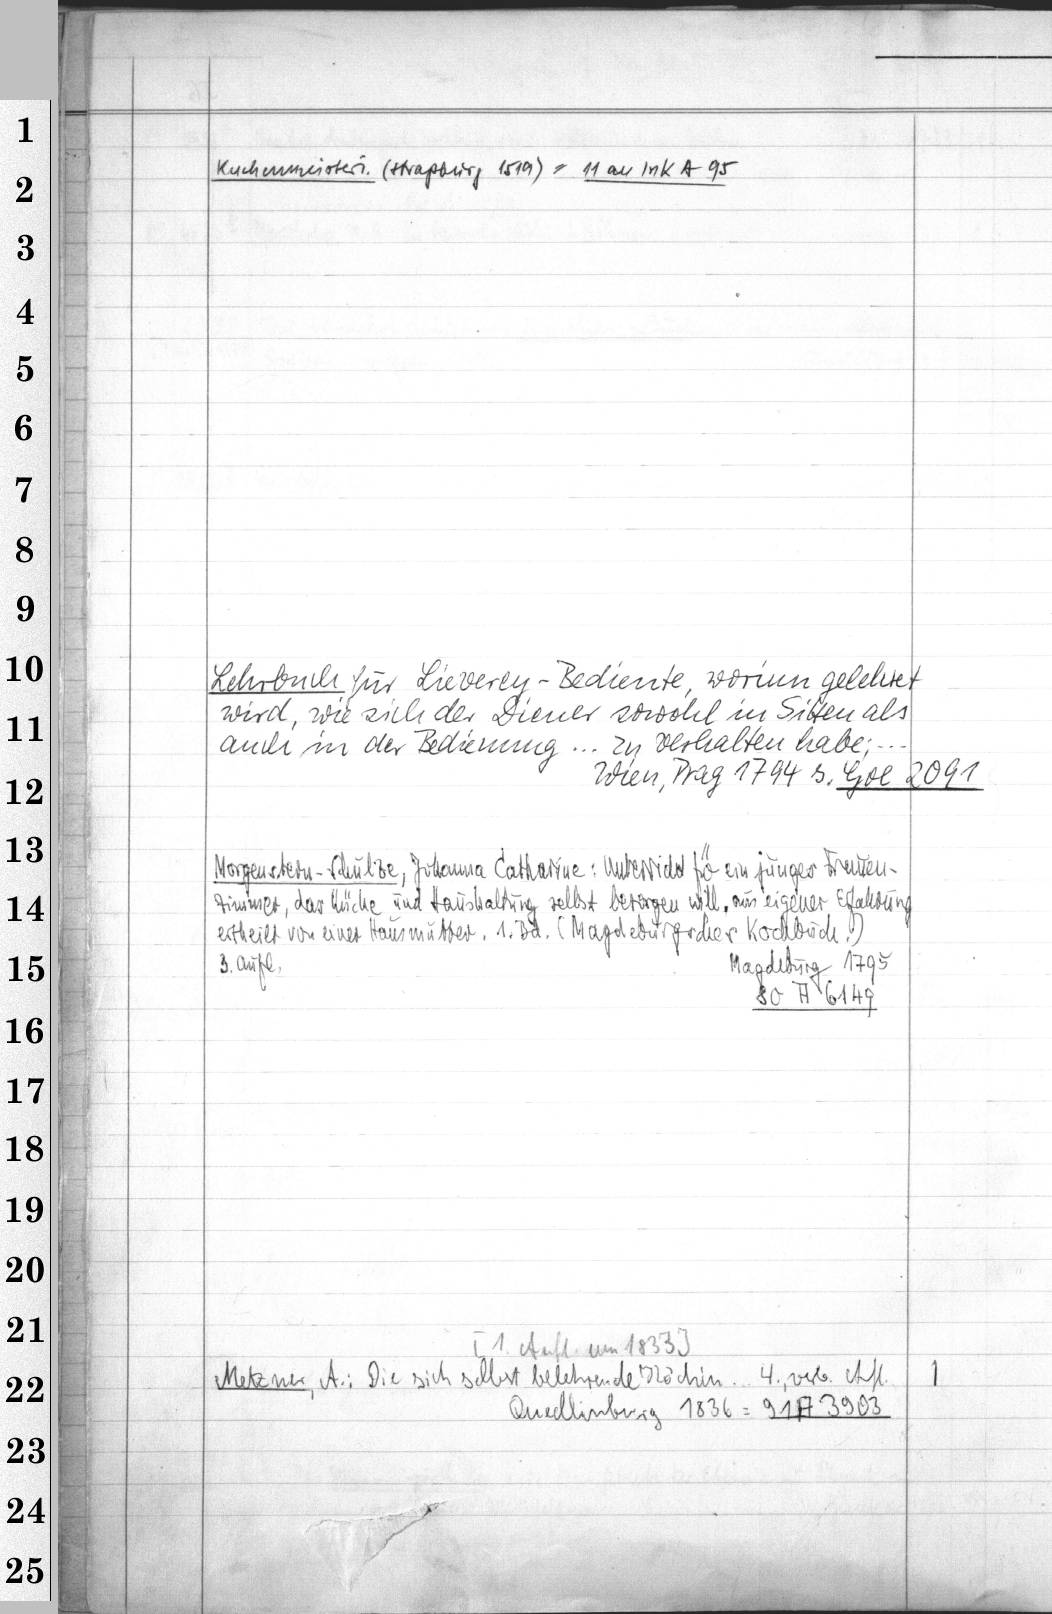 1
2
Kuchenmeisteri. (Straßburg 1519) = 11 an Ink A 95
3
4
5
6
7
8
9
10
Lehrbuch für Lieverey-Bediente, worinn gelehret
11
wird, wie sich der Diener sowohl in Sitten als
auch in der Bedienung ... zu verhalten habe; ...
12
Wien, Prag 1794 s. Goe 2091
13
Morgenstern-Schulze, Johanna Catharine: Unterricht für ein junges Frauen-
14
zimmer, das Küche und Haushaltung selbst besorgen will, aus eigener Erfahrung
ertheilt von einer Hausmutter. 1. Bd. (Magdeburgisches Kochbuch.)
15
3. Aufl. Magdeburg 1795
80 A 6149
16
17
18
19
20
21
[1. Aufl. um 1833]
22
Metzner, A.: Die sich selbst belehrende Köchin... 4., verb. Aufl. 1
Quedlinburg 1836 = 91 A 3903
23
24
25